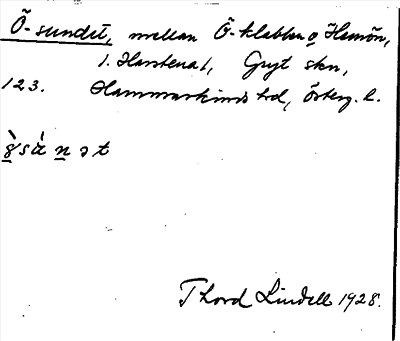 Ö-sundet, mellan Ö-klabben o Hemön,
1. Harstena 1, Gryt skn,
123. Hammarkinds hd, Österg. l.
Thord Lindell 1928.